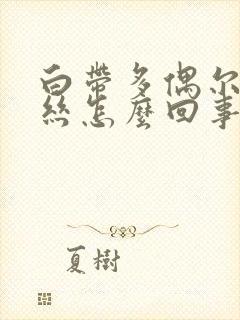 白帶多偶尔
絲怎麼回事
夏樹